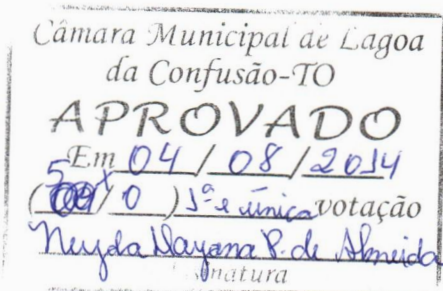 Câmara Municipal de Lagoa
da Confusão-TO
APROVADO
Em 04 / 08 / 2014
5 x
( / 0 ) 1ª e única votação
Neyda Dayana P. de Almeida
natura